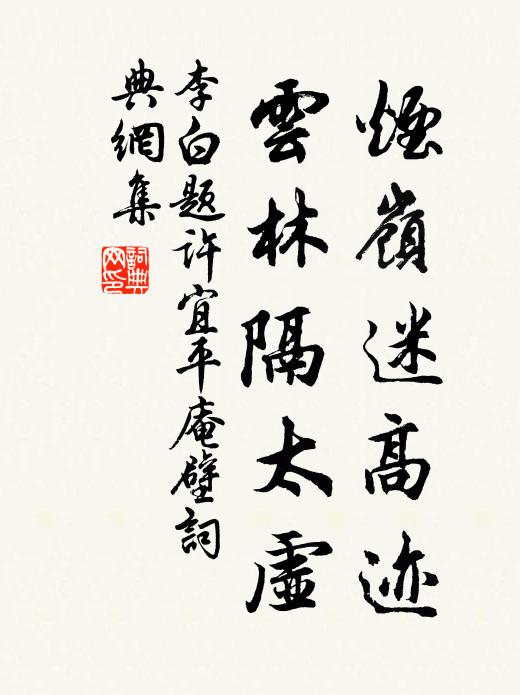 煙嶺迷高迹
雲林隔太虛
李白題許宜平庵壁詞
典網集
詞典
网印